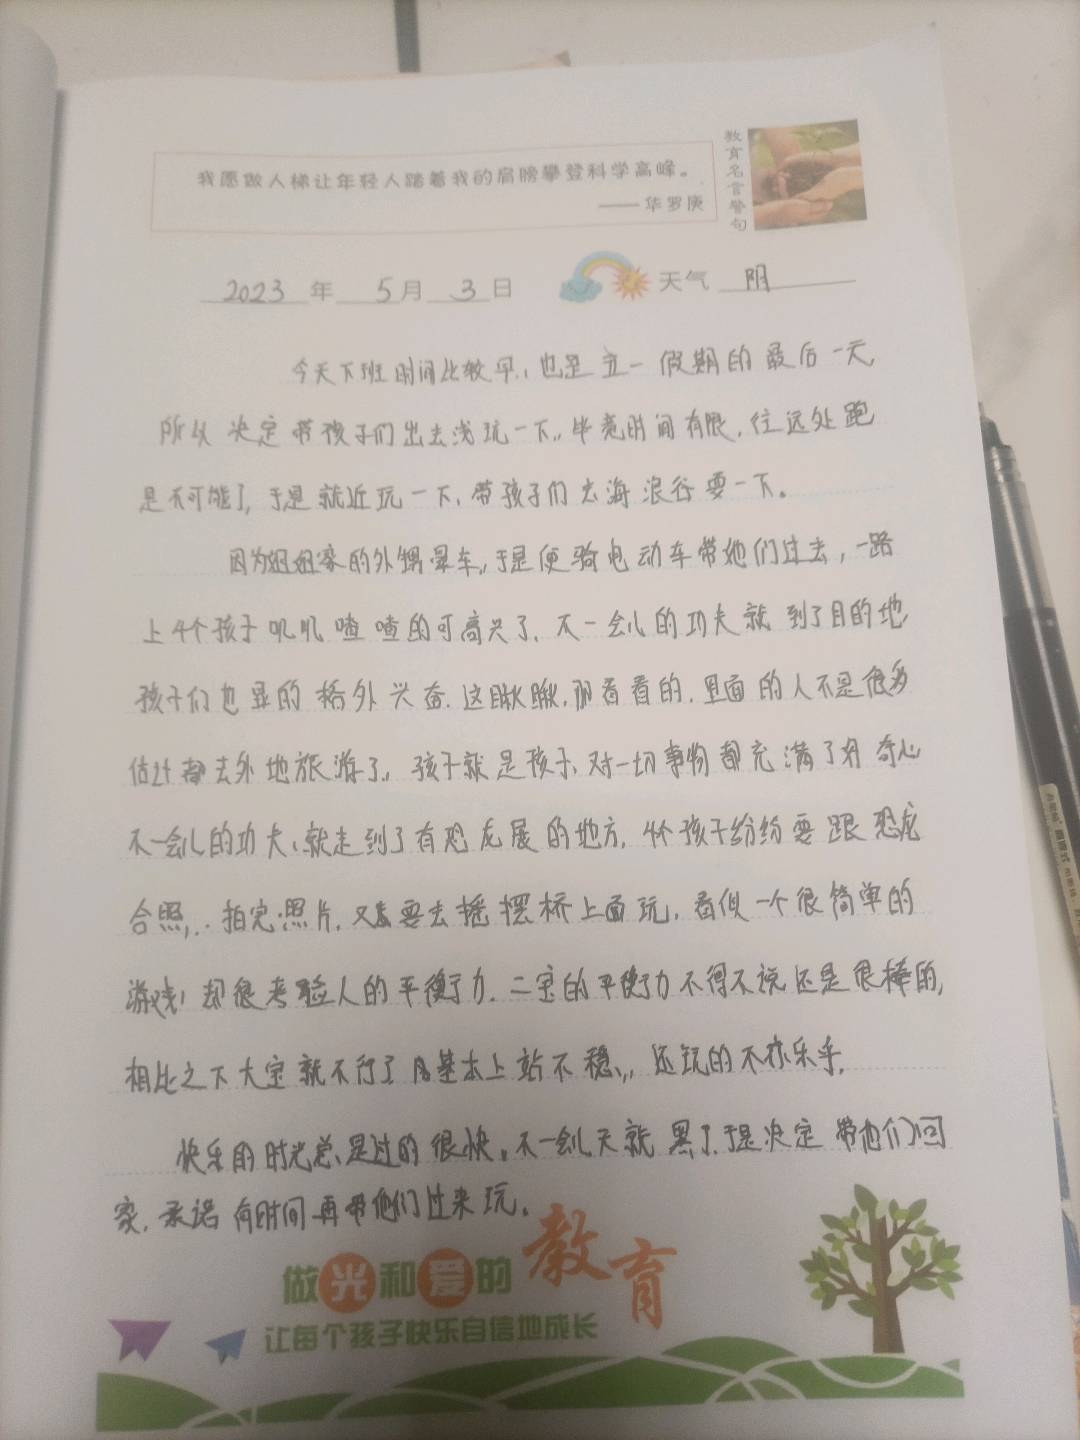 我愿做人梯让年轻人踏着我的肩膀攀登科学高峰。
——华罗庚
教育名言警句
2023年5月3日 天气 阴
今天下班时间比较早,也是五一假期的最后一天,
所以决定带孩子们出去浅玩一下,毕竟时间有限,往远处跑
是不可能了,于是就近玩一下,带孩子们去海浪谷耍一下。
因为姐姐家的外甥晕车,于是便骑电动车带她们过去,一路
上4个孩子叽叽喳喳的可高兴了,不一会儿的功夫就到了目的地
孩子们也显的格外兴奋,这瞅瞅,那看看的,里面的人不是很多
估计都去外地旅游了,孩子就是孩子,对一切事物都充满了好奇心
不一会儿的功夫,就走到了有恐龙展的地方,4个孩子纷纷要跟恐龙
合照,拍完照片,又要去摇摆桥上面玩,看似一个很简单的
游戏,却很考验人的平衡力,二宝的平衡力不得不说还是很棒的,
相比之下大宝就不行了,基本上站不稳,还玩的不亦乐乎,
快乐的时光总是过的很快,不一会儿天就黑了,于是决定带他们回
家,承诺有时间再带他们过来玩。
做光和爱的教育
让每个孩子快乐自信地成长